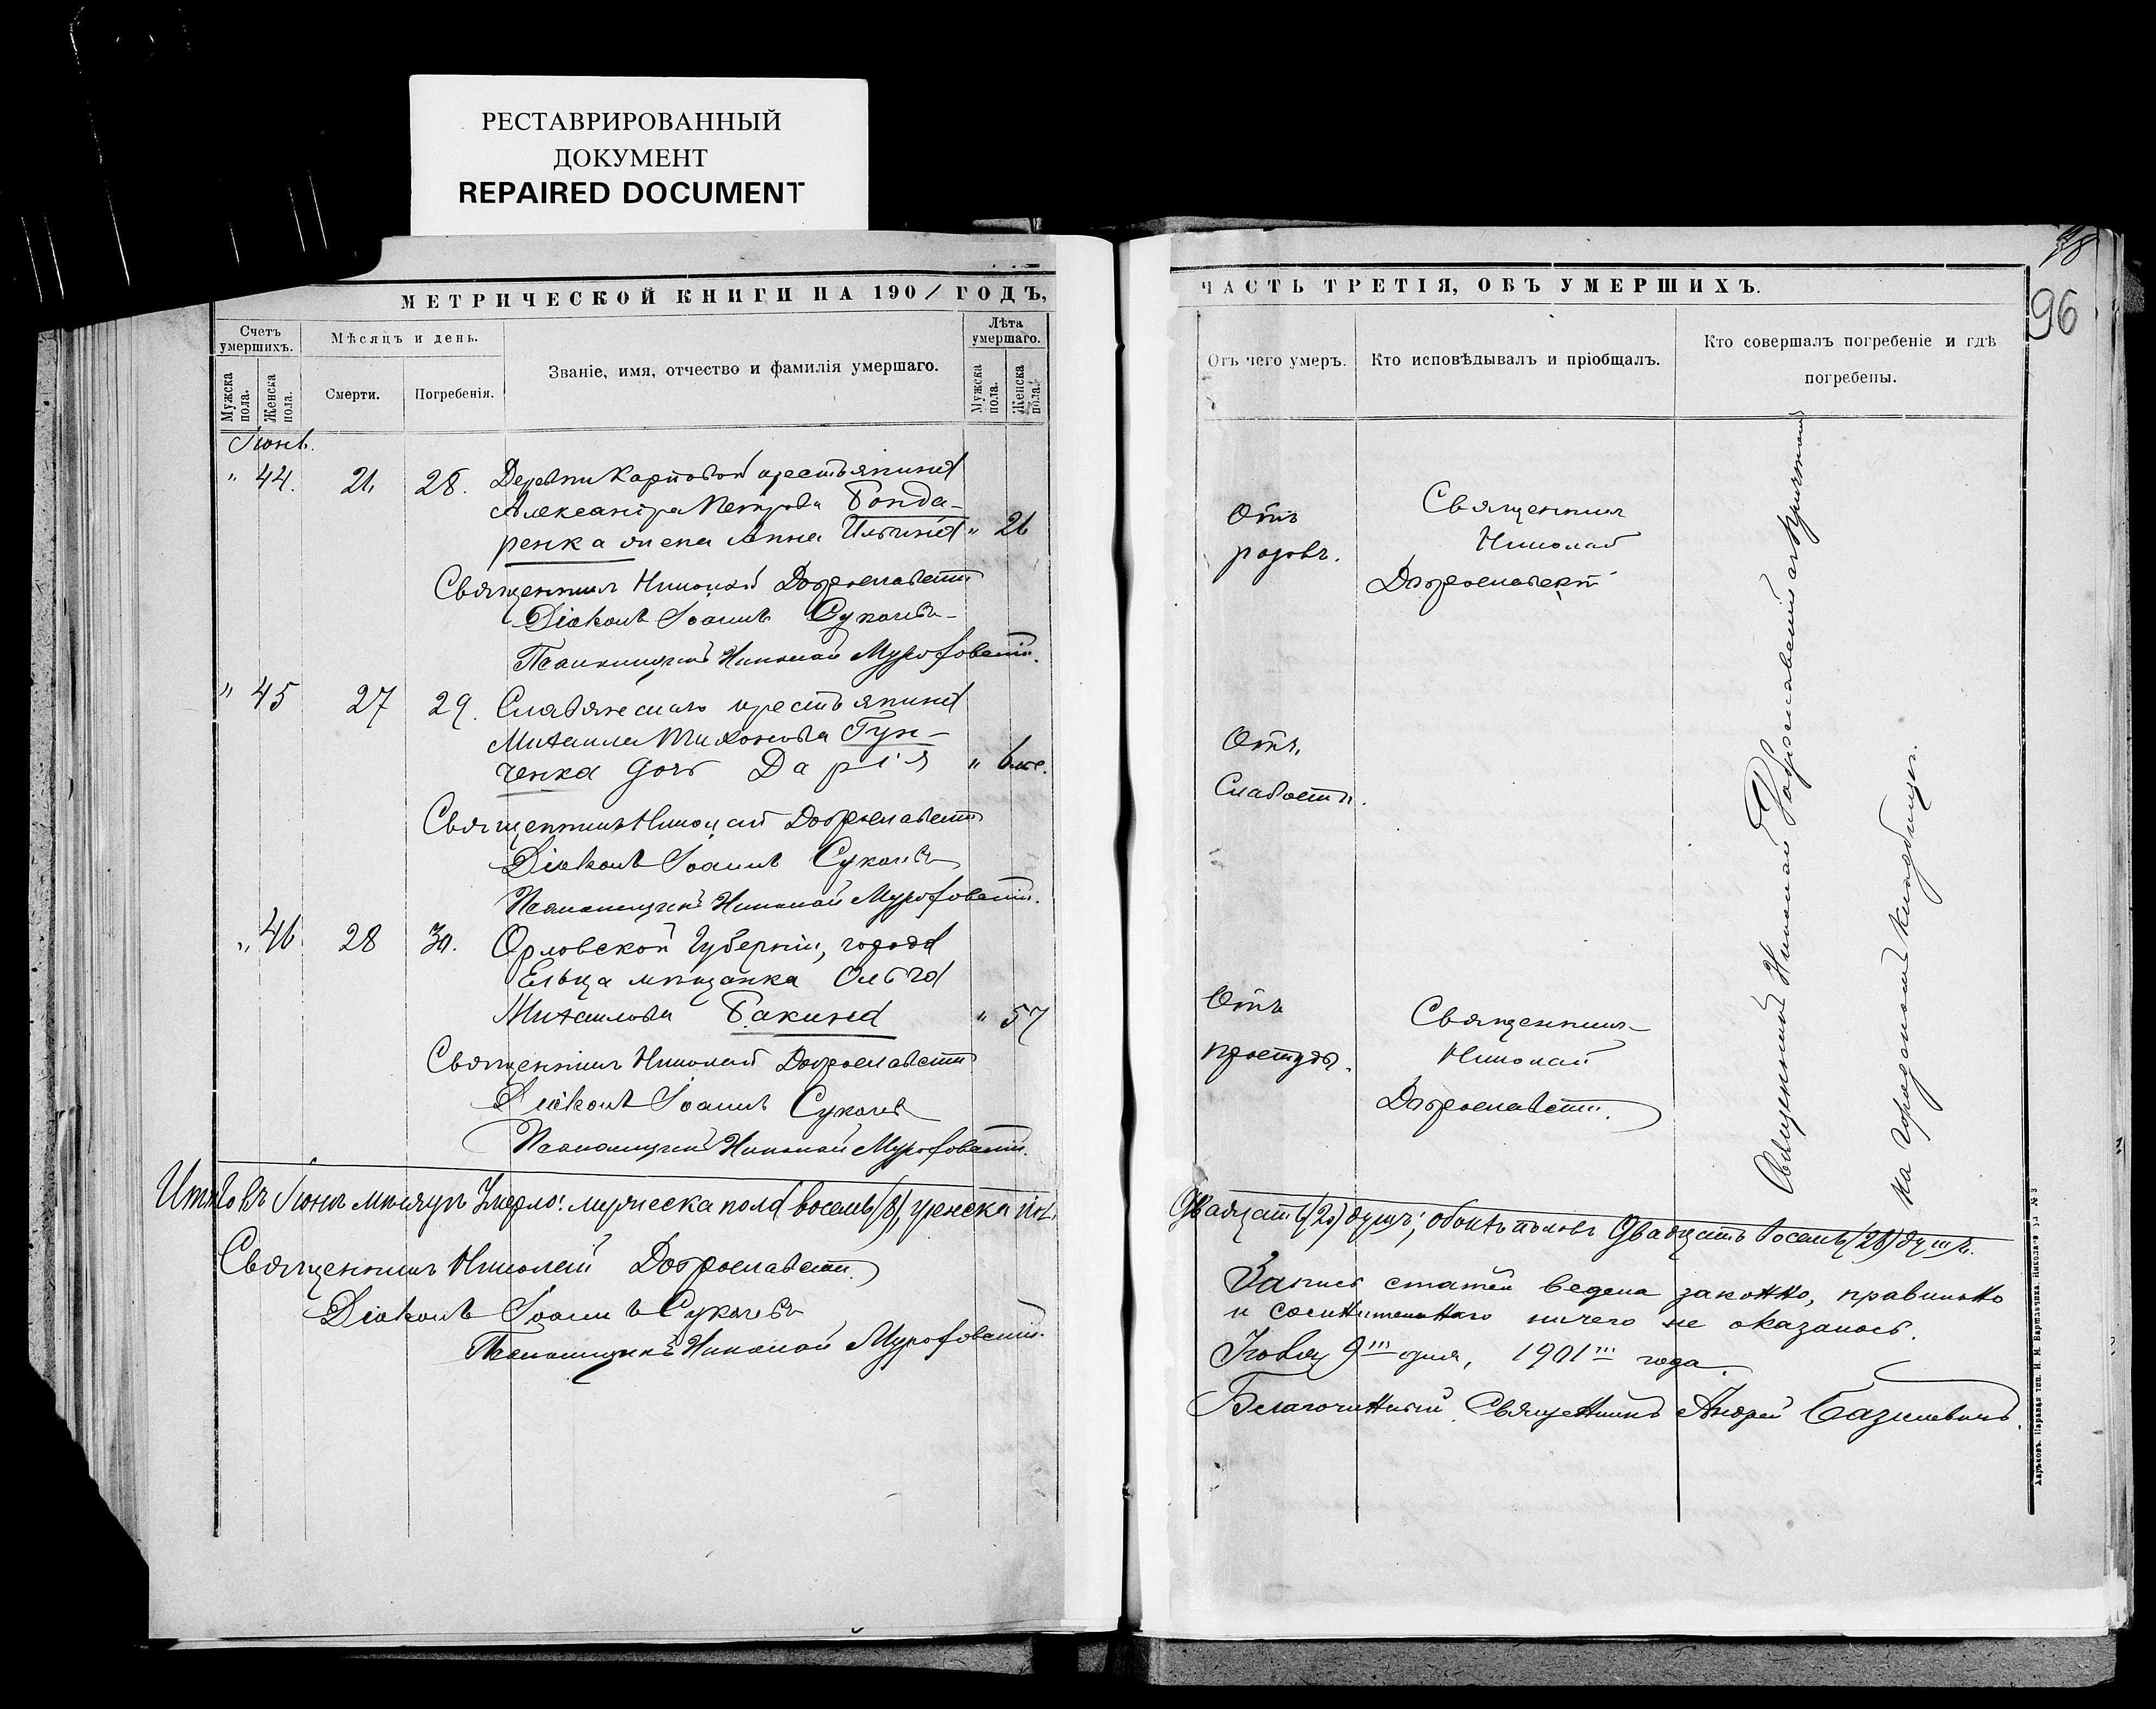 РЕСТАВРИРОВАННЫЙ
ДОКУМЕНТ
REPAIRED DOCUMENT
МЕТРИЧЕСКОЙ КНИГИ НА 1901 ГОДЪ,
Счетъ умершихъ.
Мужска пола.
Женска пола.
Мѣсяцъ и день.
Смерти.
Погребенія.
Званіе, имя, отчество и фамилія умершаго.
Лѣта умершаго.
Мужска пола.
Женска пола.
Іюнь.
" 44. 21. 28. Деревни Карповой крестьянина
Александра Петрова Бонда-
ренка жена Анна Ильина " 26
Священникъ Николай Доброславскій
Діаконъ Іоаннъ Сукачевъ
Псаломщикъ Николай Мурофованій.
" 45 27 29. Славянска крестьянина
Михаила Тихонова Гун-
ченка дочь Дарія " 6 мс.
Священникъ Николай Доброславскій
Діаконъ Іоаннъ Сукачевъ
Псаломщикъ Николай Мурофованій.
" 46. 28 30. Орловской Губерніи, города
Ельца мѣщанка Ольга
Михаилова Бакина " 57
Священникъ Николай Доброславскій
Діаконъ Іоаннъ Сукачевъ
Псаломщикъ Николай Мурофованій.
Итого въ Іюнѣ мѣсяцѣ умерло: мужеска пола восемь (8), женска пол.
Священникъ Николай Доброславскій
Діаконъ Іоаннъ Сукачевъ
Псаломщикъ Николай Мурофованій.
98
96
ЧАСТЬ ТРЕТІЯ, ОБЪ УМЕРШИХЪ.
Отъ чего умеръ.
Кто исповѣдывалъ и пріобщалъ.
Кто совершалъ погребеніе и гдѣ погребены.
Отъ
родовъ.
Священникъ
Николай
Доброславскій
Отъ
Слабости.
Отъ
простуды.
Священникъ
Николай
Доброславскій.
Священникъ Николай Доброславскій съ причтомъ
на городскомъ кладбищѣ.
Двадцать (20) душъ; обоихъ половъ двадцать восемь (28) душъ.
Запись статей ведена законно, правильно
и сомнительнаго ничего не оказалось.
9го дня, 1901го года.
Благочинный Священникъ Андрей Базилевичъ.